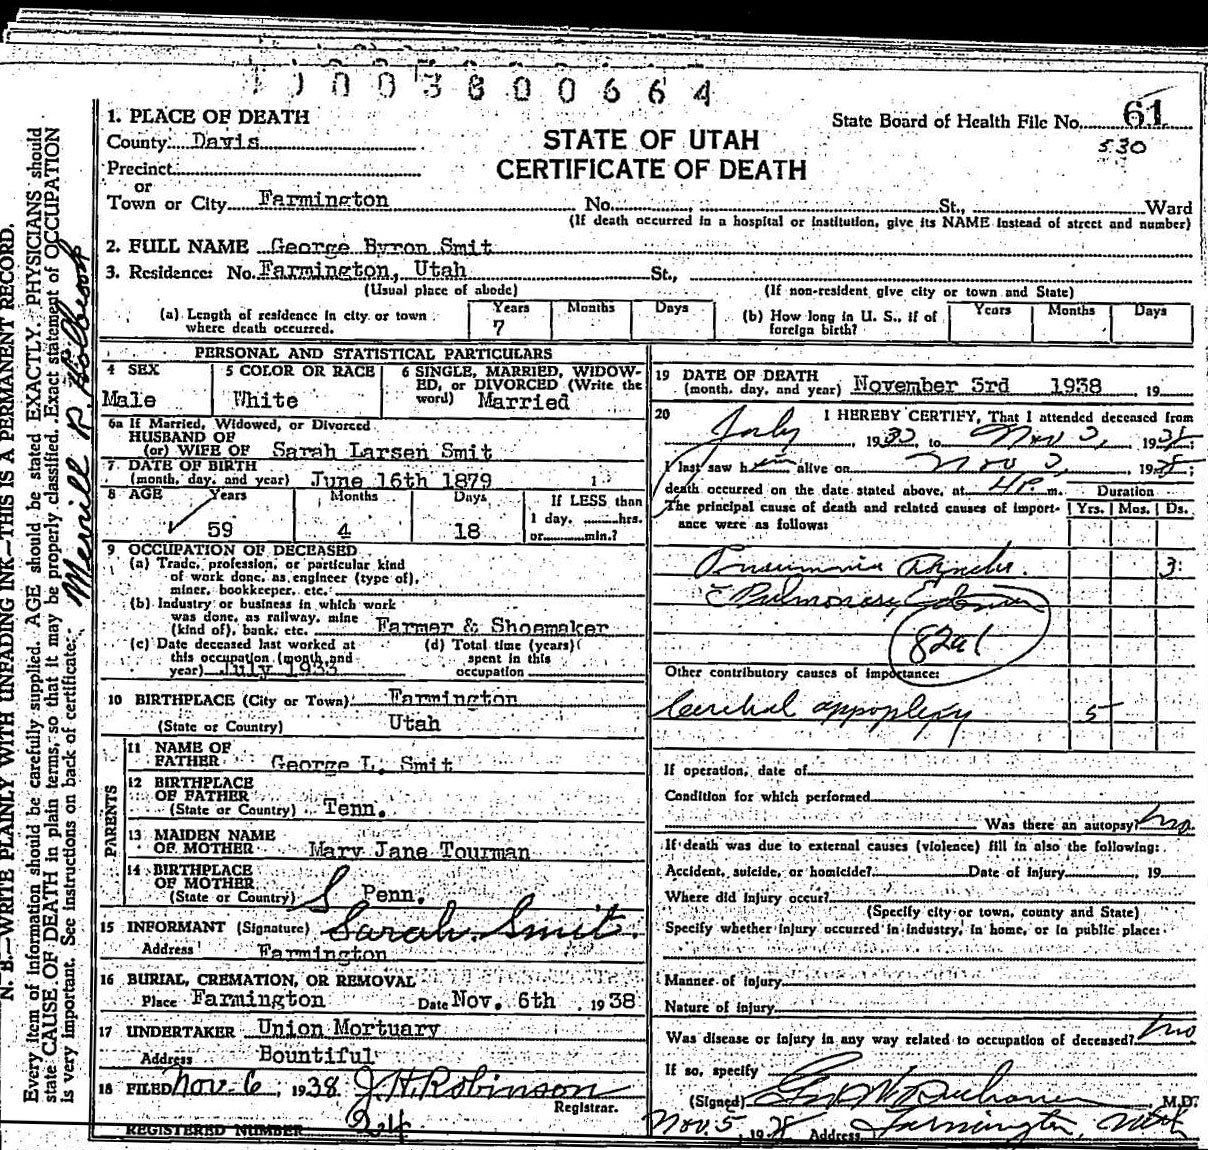 1003800664
State Board of Health File No. 61
530
STATE OF UTAH
CERTIFICATE OF DEATH
1. PLACE OF DEATH
County: Davis
Precinct
or
Town or City Farmington No. St., Ward
(If death occurred in a hospital or institution, give its NAME instead of street and number)
2. FULL NAME George Byron Smit
3. Residence: No. Farmington, Utah St.,
(Usual place of abode) (If non-resident give city or town and State)
(a) Length of residence in city or town where death occurred. Years 7 Months Days
(b) How long in U. S., if of foreign birth? Years Months Days
PERSONAL AND STATISTICAL PARTICULARS
4 SEX Male
5 COLOR OR RACE White
6 SINGLE, MARRIED, WIDOWED, or DIVORCED (Write the word) Married
6a If Married, Widowed, or Divorced
HUSBAND OF
(or) WIFE OF Sarah Larsen Smit
7 DATE OF BIRTH
(month, day, and year) June 16th 1879
8 AGE Years 59 Months 4 Days 18
If LESS than
1 day, hrs.
or min.?
9 OCCUPATION OF DECEASED
(a) Trade, profession, or particular kind
of work done, as engineer (type of),
miner, bookkeeper, etc.
(b) Industry or business in which work
was done, as railway, mine
(kind of), bank, etc. Farmer & Shoemaker
(c) Date deceased last worked at
this occupation (month and
year) July 1933
(d) Total time (years)
spent in this
occupation
10 BIRTHPLACE (City or Town) Farmington
(State or Country) Utah
PARENTS
11 NAME OF
FATHER George L. Smit
12 BIRTHPLACE
OF FATHER
(State or Country) Tenn.
13 MAIDEN NAME
OF MOTHER Mary Jane Tourman
14 BIRTHPLACE
OF MOTHER
(State or Country) Penn.
15 INFORMANT (Signature) Sarah Smit.
Address Farmington
16 BURIAL, CREMATION, OR REMOVAL
Place Farmington Date Nov. 6th, 1938
17 UNDERTAKER Union Mortuary
Address Bountiful
18 FILED Nov-6, 1938 J. H. Robinson
Registrar.
REGISTERED NUMBER 24
19 DATE OF DEATH
(month, day, and year) November 3rd 1938, 19
20 I HEREBY CERTIFY, That I attended deceased from
July, 1933, to Nov 3, 1938;
I last saw him alive on Nov 3, 1938;
death occurred on the date stated above, at 4 P. m.
Duration
The principal cause of death and related causes of importance were as follows: Yrs. Mos. Ds.
Pneumonia 3
Pulmonary Edema
82a1
Other contributory causes of importance:
Cerebral appoplexy 5
If operation, date of
Condition for which performed
Was there an autopsy? no
If death was due to external causes (violence) fill in also the following:
Accident, suicide, or homicide? Date of injury, 19
Where did injury occur?
(Specify city or town, county and State)
Specify whether injury occurred in industry, in home, or in public place:
Manner of injury
Nature of injury
Was disease or injury in any way related to occupation of deceased? no
If so, specify
(Signed) M.D.
Nov. 5, 1938 Address Farmington, Utah
N. B.—WRITE PLAINLY WITH UNFADING INK—THIS IS A PERMANENT RECORD.
Every item of information should be carefully supplied. AGE should be stated EXACTLY. PHYSICIANS should
state CAUSE OF DEATH in plain terms, so that it may be properly classified. Exact statement of OCCUPATION
is very important. See instructions on back of certificate.
Merrill R.